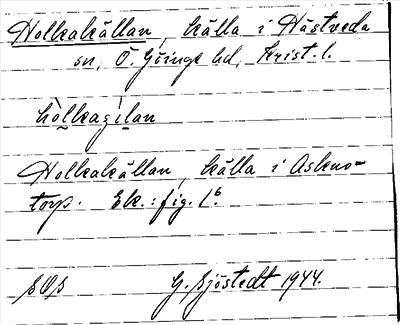 Holkakällan, källa i Hästveda
sn, Ö. Göinge hd, Krist. l.
hòlkaçílan
Holkakällan, källa i Askno-
torp. Ek.: fig. 1⁶.
SOS G. Sjöstedt 1944.